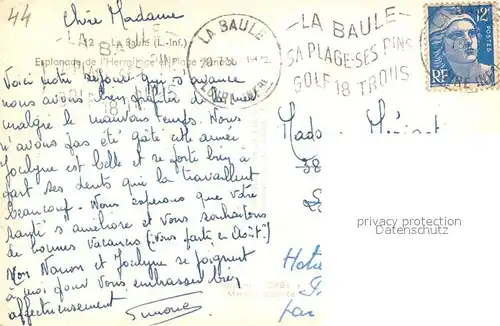 44
Chère Madame
12 - La Baule (L.-Inf.)
Esplanade de l'Hermitage et la Plage
LA BAULE
LOIRE INFRE
LA BAULE
SA PLAGE-SES PINS
GOLF 18 TROUS
12F
RF
Voici notre séjour qui s'avance
nous avons bien profité de la mer
malgré le mauvais temps. Nous
n'avons pas été gâté cette année
Jocelyne est belle et se porte bien à
part ses dents qui la travaillent
beaucoup. Nous espérons que votre
santé s'améliore et vous souhaitons
de bonnes vacances (Vous partez en Août?)
Mon Nanou et Jocelyne se joignent
à moi pour vous embrasser bien
affectueusement Simone
Mada
38
privacy protection
Datenschutz
par